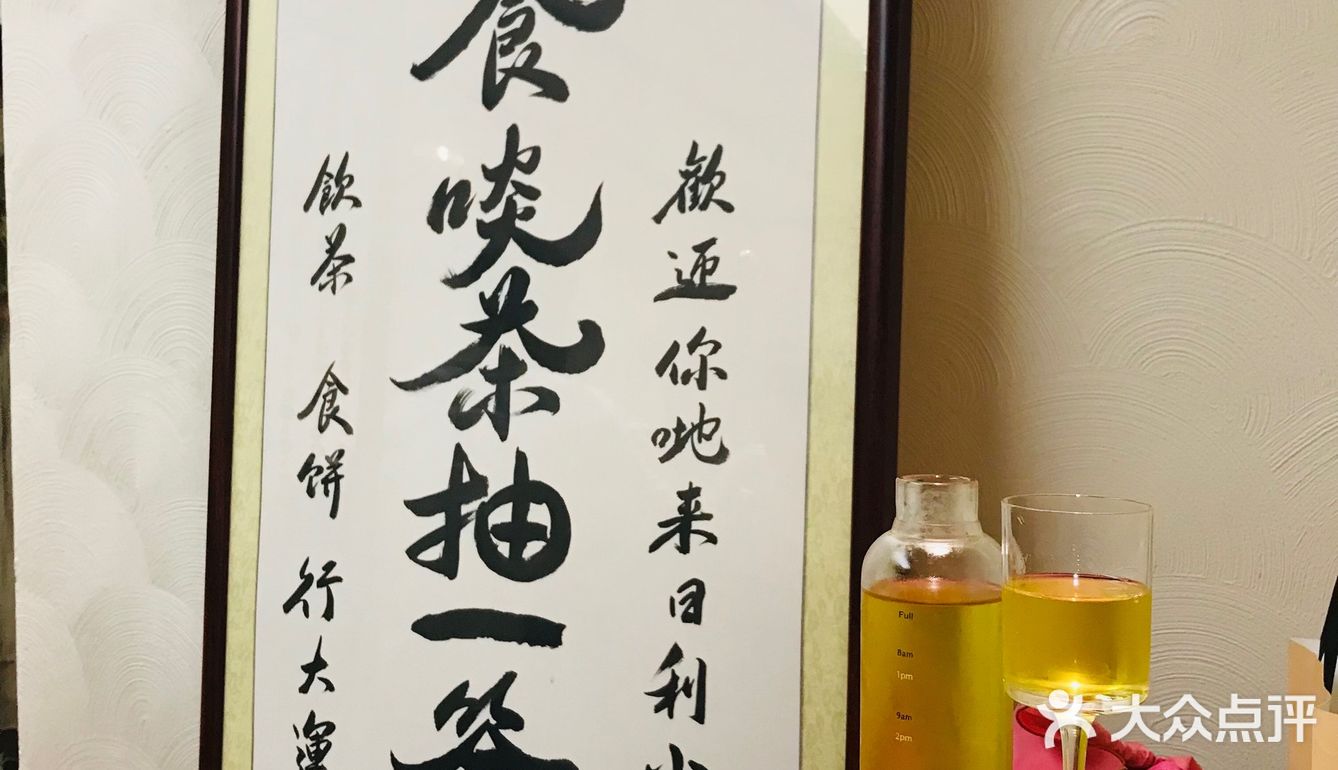 歡迎你哋来日利
食啖茶抽一签
飲茶 食餅 行大運
Full
8am
1pm
9am
2pm
大众点评